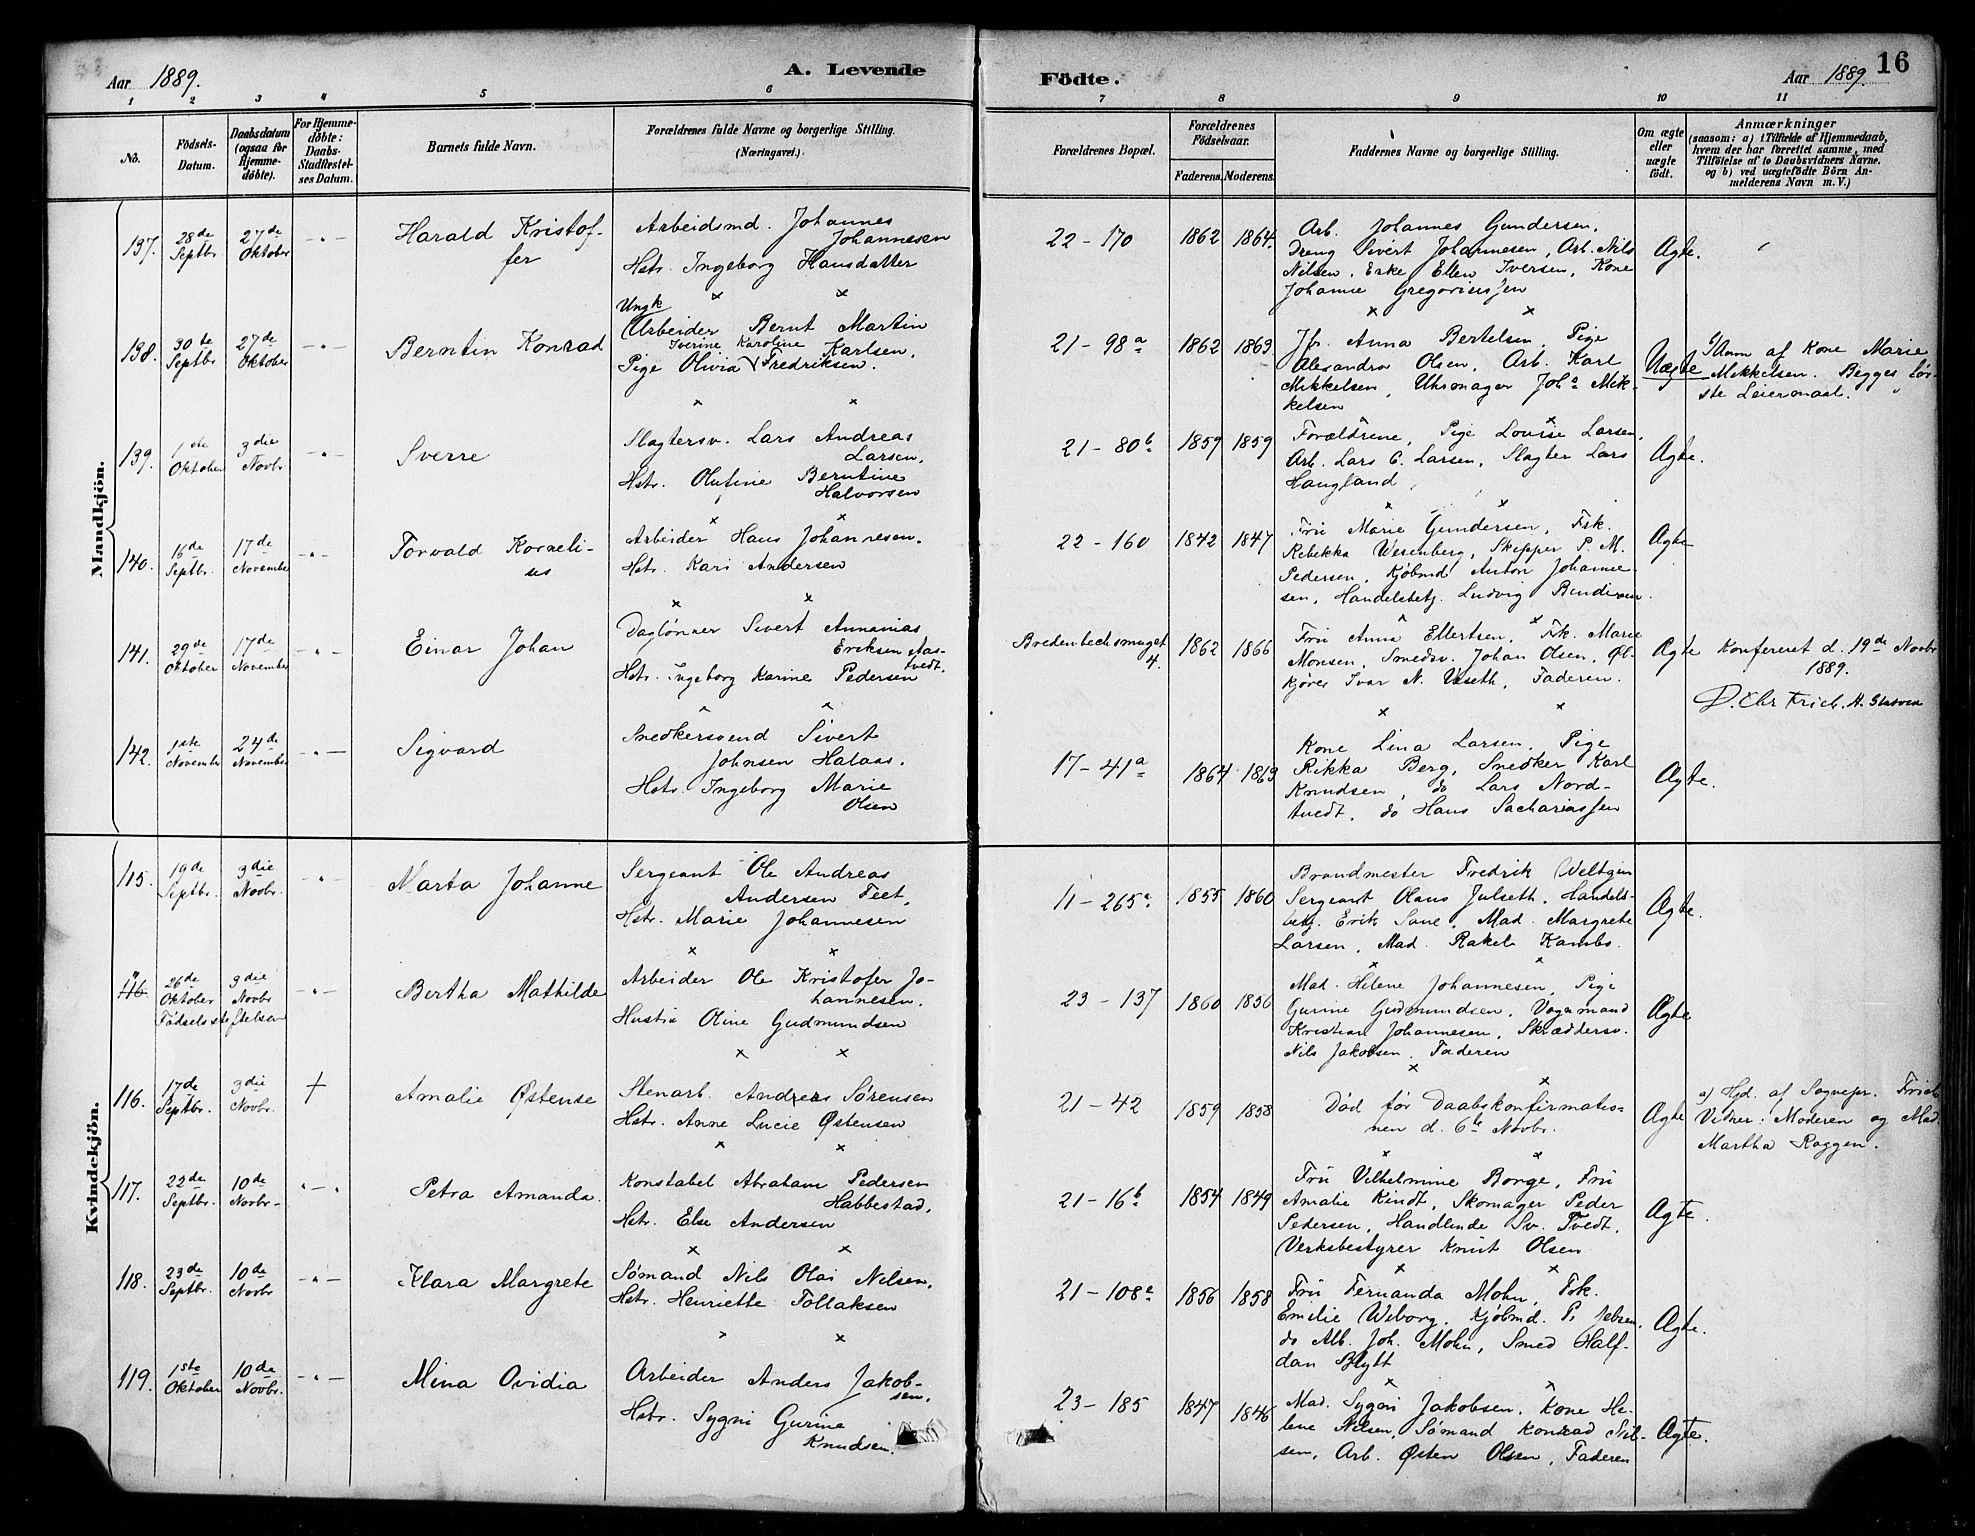 Aar 1889.
A. Levende
Födte.
Aar 1889.
16
1 2 3 4 5 6 7 8 9 10 11
No.
Födsels-
Datum.
Daabsdatum
(ogsaa for
Hjemme-
döbte).
For Hjemme-
döbte:
Daabs-
Stadfæstel-
ses Datum.
Barnets fulde Navn.
Forældrenes fulde Navne og borgerlige Stilling.
(Næringsvei.)
Forældrenes Bopæl.
Forældrenes
Födselsaar.
Faderens. Moderens.
Faddernes Navne og borgerlige Stilling.
Om ægte
eller
uægte
födt.
Anmærkninger
(saasom: a) i Tilfælde af Hjemmedaab,
hvem der har forrettet samme, med
Tilföielse af to Daabsvidners Navne.
og b) ved uægtefödte Börn An-
melderens Navn m. V.)
Mandkjön.
137.
28de
Septbr.
27de
Oktober
Harald Kristof-
fer
Arbeidsmd. Johannes
Johannesen
Hstr. Ingeborg Hansdatter
22-170
1862 1864.
Arb. Johannes Gundersen,
Dreng Sivert Johannesen, Arb. Nils
Nilsen, Enke Ellen Iversen, Kone
Johanne Gregoriussen
Ægte.
138.
30te
Septbr
27de
Oktober
Berntin Konrad
Ungk
Arbeider Bernt Martin
Karlsen,
Iverine Karoline
Pige Olivia Fredriksen.
21-98a
1862 1863
Jfr. Anna Bertelsen, Pige
Alexandra Olsen, Arb. Karl
Mikkelsen, Uhrmager Johs Mik-
kelsen
Uægte
Anm af Kone Marie
Mikkelsen. Begges før-
ste Leiermaal.
139.
1ste
Oktober
3die
Novbr
Sverre
Slagtersv. Lars Andreas
Larsen,
Hstr. Olufine Berntine
Halvorsen
21-80b
1859 1859
Forældrene, Pige Louise Larsen,
Arb. Lars C. Larsen, Slagter Lars
Haugland
Ægte.
140.
16de
Septbr.
17de
November
Torvald Korneli-
us
Arbeider Hans Johannesen.
Hstr. Kari Andersen
22-160
1842 1847
Fru Marie Gundersen, Frk.
Rebekka Wesenberg, Skipper P. M.
Pedersen, Kjøbmd Anton Johanne-
sen, Handelsbetj. Ludvig
Ægte
141.
29de
Oktober
17de
November
Einar Johan
Dagløner Sivert Annanias
Eriksen Aas-
tvedt.
Hstr. Ingeborg Karine Pedersen
Bredenbechsmuget
4.
1862 1866
Fru Anna Ellertsen, Frk. Marie
Monsen, Smedsv. Johan Olsen, Øl-
kjører Ivar N. Veseth, Faderen.
Ægte
Konfereret d. 19de Novbr
1889.
142.
1ste
November
24de
November
Sigvard
Snedkersvend Sivert
Johnsen Halaas.
Hstr. Ingeborg Marie
Olsen
17-41a
1864 1863
Kone Lina Larsen, Pige
Rikka Berg, Snedker Karl
Knudsen, do Lars Nord-
tvedt, do Hans Sachariassen
Ægte.
Kvindekjön.
115.
19de
Septbr.
3die
Novbr.
Marta Johanne
Sergeant Ole Andreas
Andersen Feet,
Hstr. Marie Johannesen
11-265a
1855 1860
Brandmester Fredrik
Sergeant Olaus Julseth, Handels-
betj. Erik Sane, Mad. Margrete
Larsen, Mad. Rakel Kambo.
Ægte.
116
26de
Oktober
3die
Novbr
Bertha Mathilde
Arbeider Ole Kristofer Jo-
hannesen.
Hustru Oline Gudmundsen
23-137
1860 1856
Mad. Helene Johannesen, Pige
Gurine Gudmundsen, Vognmand
Kristian Johannesen, Skræddersv.
Nils Jakobsen, Faderen
Ægte
116.
17de
Septbr.
3die
Novbr.
Amalie Østense
Stenarb. Andreas Sørensen
Hstr. Anne Lucie Østensen
21-42
1859 1858
Død før Daabskonfirmatio-
nen d. 6te Novbr.
Ægte
a) Hjd. af Sognepr. Frich
Vidner: Moderen og Mad.
Martha Roggen.
117.
22de
Septbr.
10de
Novbr.
Petra Amanda.
Konstabel Abraham Pedersen
Habbestad.
Hstr. Else Andersen
21-16b
1854 1849
Fru Vilhelmine Borge, Fru
Amalie Kindt, Skomager Peder
Pedersen, Handlende Sv. Tvedt,
Verksbestyrer Knut Olsen
Ægte.
118.
23de
Septbr.
10de
Novbr
Klara Margrete
Sømand Nils Olai Nilsen.
Hstr. Henriette Tollaksen
21-108a
1856 1858
Fru Fernanda Mohn, Frk.
Emilie Wiborg, Kjøbmd. P. Jebsen,
do Alb. Joh. Mohn, Smed Half-
dan Blytt
Ægte.
119.
1ste
Oktober
10de
Novbr.
Mina Ovidia
Arbeider Anders Jakob-
sen.
Hstr. Sygni Gurine
Knudsen.
23-185
1847 1846
Mad. Sygni Jakobsen, Kone He-
lene Nilsen, Sømand Konrad Nil-
sen, Arb. Østen Olsen, Faderen
Ægte.